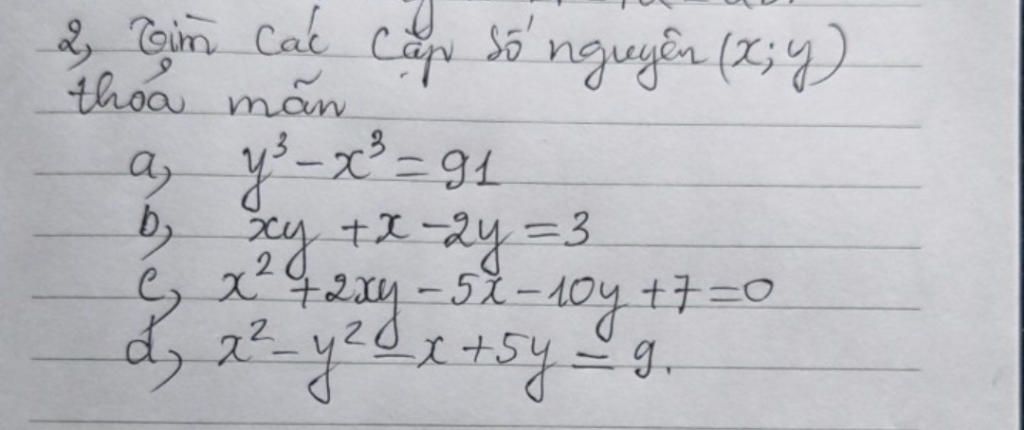 2, Tìm các cặp số nguyên (x; y)
thỏa mãn
a, y³ - x³ = 91
b, xy + x - 2y = 3
c, x² + 2xy - 5x - 10y + 7 = 0
d, x² - y² - x + 5y = 9.